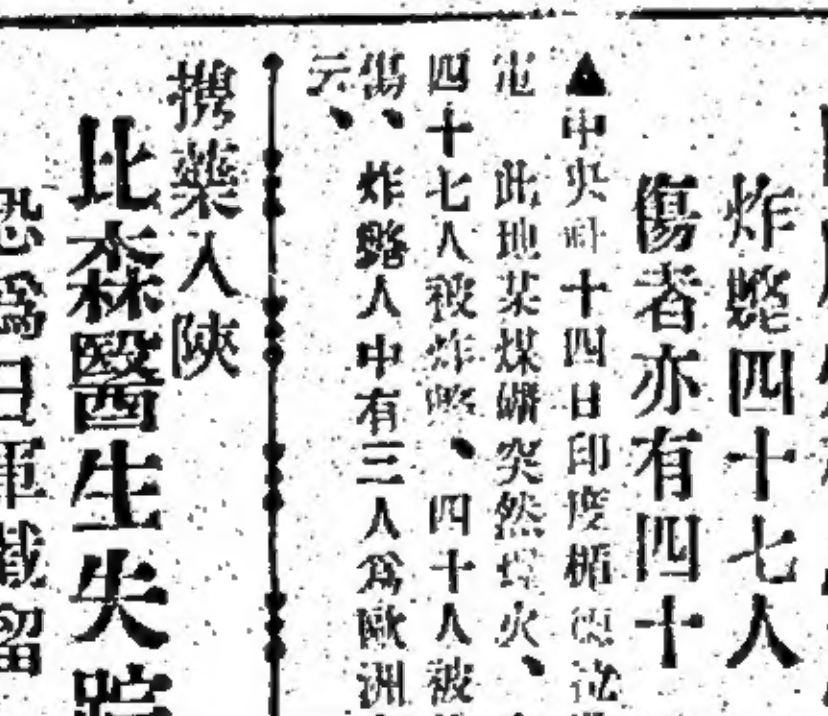 炸斃四十七人
傷者亦有四十
▲中央社十四日印度楯德
電　此地某煤礦突然爆火、
四十七人被炸斃、四十人被
傷、炸斃人中有三人為歐洲
云、
携藥入陝
比森醫生失踪
恐爲日軍截留